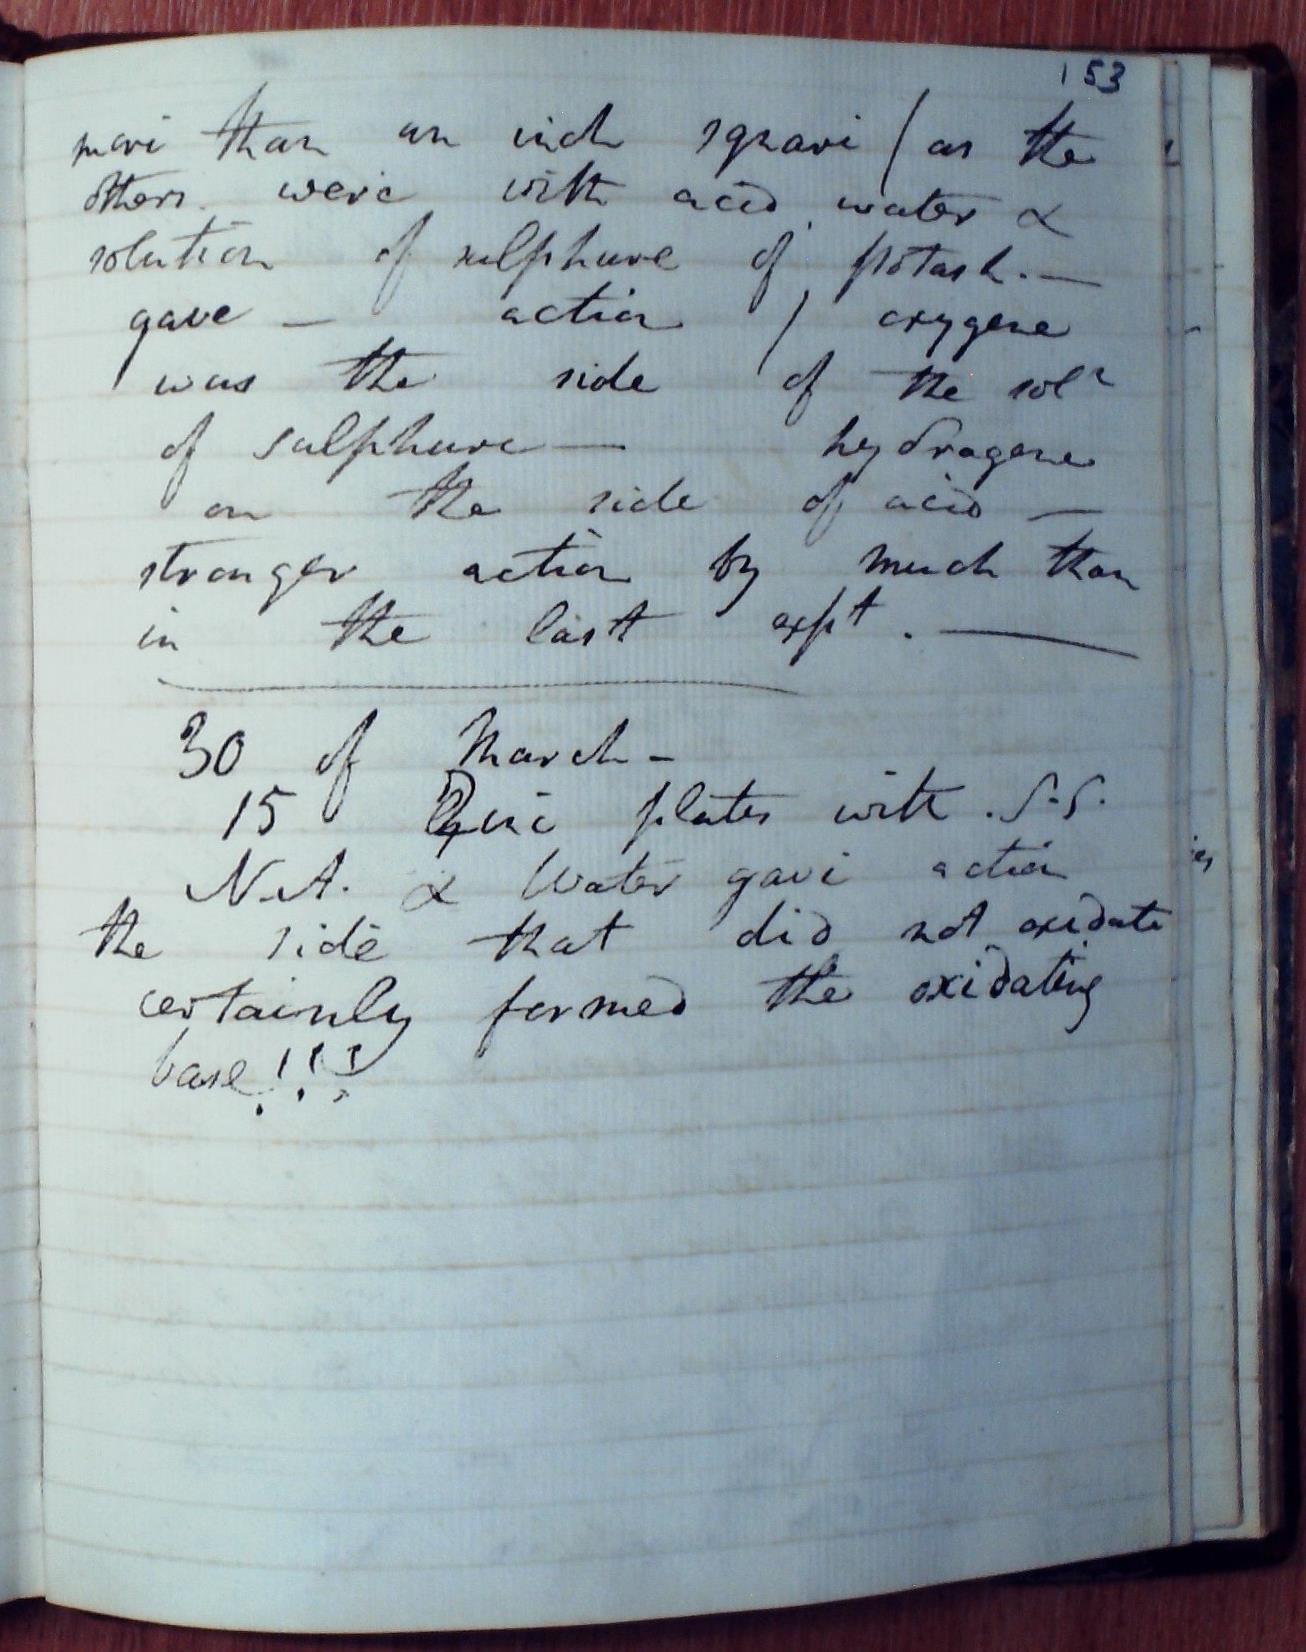 153
more than an inch square / as the
others were with acid water &
solution of sulphure of potash. —
gave — action / oxygene
was the side of the solⁿ
of sulphure — hydrogene
on the side of acid —
stronger action by much than
in the last expt. —
30 of March –
15 Zinc plates with S.S.
N.A. & Water gave action
the side that did not oxidate
certainly formed the oxidating
base!!!